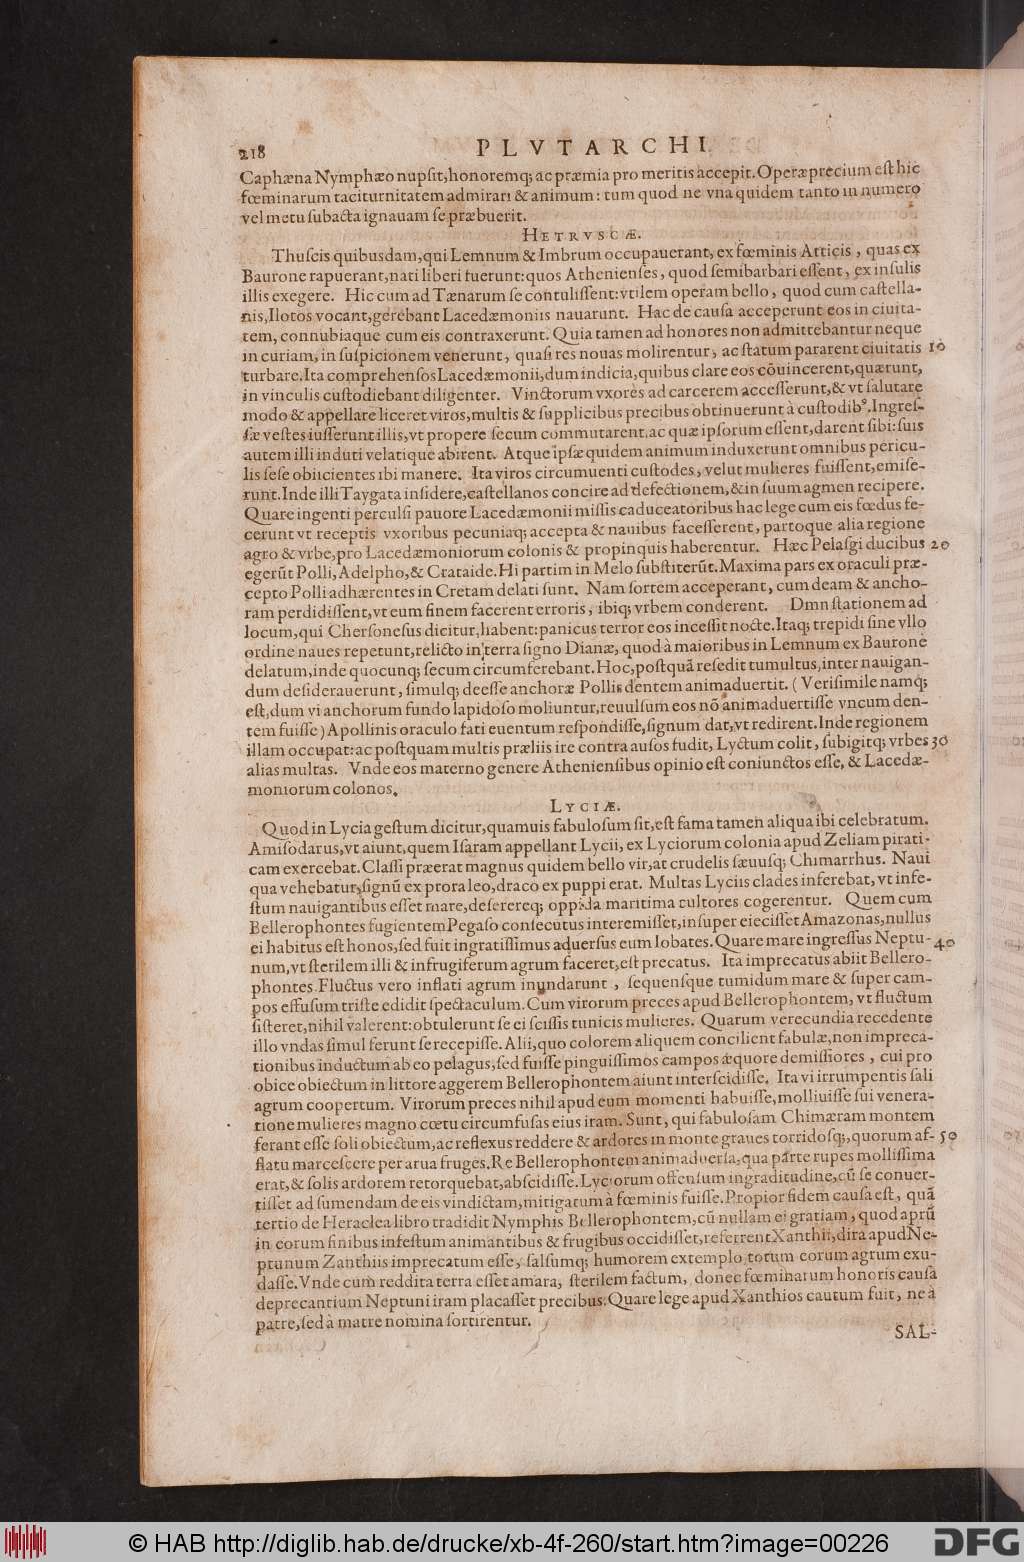 218 PLVTARCHI
Caphæna Nymphæo nupſit,honoremq́; ac præmia pro meritis accepit. Operæprecium eſt hic
fœminarum taciturnitatem admirari & animum: tum quod ne vna quidem tanto in numero
vel metu ſubacta ignauam ſe præbuerit.
HETRVSCÆ.
Thuſcis quibusdam,qui Lemnum & Imbrum occupauerant, ex fœminis Atticis, quas ex
Baurone rapuerant,nati liberi fuerunt:quos Athenienſes, quod ſemibarbari eſſent, ex inſulis
illis exegere. Hic cum ad Tænarum ſe contuliſſent:vtilem operam bello, quod cum caſtella-
nis,Ilotos vocant,gerebant Lacedæmoniis nauarunt. Hac de cauſa acceperunt eos in ciuita-
tem, connubiaque cum eis contraxerunt. Quia tamen ad honores non admittebantur neque
in curiam, in ſuſpicionem venerunt, quaſi res nouas molirentur, ac ſtatum pararent ciuitatis 10
turbare.Ita comprehenſos Lacedæmonii,dum indicia,quibus clare eos cōuincerent,quærunt,
in vinculis cuſtodiebant diligenter. Vinctorum vxores ad carcerem acceſſerunt,& vt ſalutare
modo & appellare liceret viros,multis & ſupplicibus precibus obtinuerunt à cuſtodibꝰ.Ingreſ-
ſæ veſtes iuſſerunt illis,vt propere ſecum commutarent,ac quæ ipſorum eſſent,darent ſibi:ſuis
autem illi induti velatique abirent. Atque ipſæ quidem animum induxerunt omnibus pericu-
lis ſeſe obiicientes ibi manere. Ita viros circumuenti cuſtodes, velut mulieres fuiſſent,emiſe-
runt.Inde illi Taygata inſidere,caſtellanos concire ad defectionem,& in ſuum agmen recipere.
Quare ingenti perculſi pauore Lacedæmonii miſſis caduceatoribus hac lege cum eis fœdus fe-
cerunt vt receptis vxoribus pecuniaq́; accepta & nauibus faceſſerent, partoque alia regione
agro & vrbe,pro Lacedæmoniorum colonis & propinquis haberentur. Hæc Pelaſgi ducibus 20
egerūt Polli, Adelpho,& Crataide.Hi partim in Melo ſubſtiterūt.Maxima pars ex oraculi præ-
cepto Polli adhærentes in Cretam delati ſunt. Nam ſortem acceperant, cum deam & ancho-
ram perdidiſſent,vt eum finem facerent erroris, ibiq́; vrbem conderent. Dmn ſtationem ad
locum,qui Cherſoneſus dicitur,habent:panicus terror eos inceſſit nocte.Itaq́; trepidi ſine vllo
ordine naues repetunt,relicto in terra ſigno Dianæ, quod à maioribus in Lemnum ex Baurone
delatum,inde quocunq́; ſecum circumferebant.Hoc,poſtquā reſedit tumultus,inter nauigan-
dum deſiderauerunt, ſimulq́; deeſſe anchoræ Pollis dentem animaduertit. (Veriſimile namq́;
eſt,dum vi anchorum fundo lapidoſo moliuntur,reuulſum eos nō animaduertiſſe vncum den-
tem fuiſſe) Apollinis oraculo fati euentum reſpondiſſe,ſignum dat,vt redirent.Inde regionem
illam occupat:ac poſtquam multis præliis ire contra auſos fudit, Lyctum colit, ſubigitq́; vrbes 30
alias multas. Vnde eos materno genere Athenienſibus opinio eſt coniunctos eſſe, & Lacedæ-
moniorum colonos.
LYCIÆ.
Quod in Lycia geſtum dicitur,quamuis fabuloſum ſit,eſt fama tamen aliqua ibi celebratum.
Amiſodarus,vt aiunt,quem Iſaram appellant Lycii, ex Lyciorum colonia apud Zeliam pirati-
cam exercebat.Claſſi præerat magnus quidem bello vir,at crudelis ſæuuſq́; Chimarrhus. Naui
qua vehebatur,ſignū ex prora leo,draco ex puppi erat. Multas Lyciis clades inferebat, vt infe-
ſtum nauigantibus eſſet mare,deſererenq́; oppida maritima cultores cogerentur. Quem cum
Bellerophontes fugientem Pegaſo conſecutus interemiſſet,inſuper eieciſſet Amazonas,nullus
ei habitus eſt honos,ſed fuit ingratiſſimus aduerſus eum Iobates.Quare mare ingreſſus Neptu- 40
num,vt ſterilem illi & infrugiferum agrum faceret,eſt precatus. Ita imprecatus abiit Bellero-
phontes.Fluctus vero inflati agrum inundarunt, ſequenſque tumidum mare & ſuper cam-
pos effuſum triſte edidit ſpectaculum.Cum virorum preces apud Bellerophontem, vt fluctum
ſiſteret,nihil valerent:obtulerunt ſe ei ſciſſis tunicis mulieres. Quarum verecundia recedente
illo vndas ſimul ferunt ſe recepiſſe.Alii,quo colorem aliquem concilient fabulæ,non impreca-
tionibus inductum ab eo pelagus,ſed fuiſſe pinguiſſimos campos æquore demiſſiores, cui pro
obice obiectum in littore aggerem Bellerophontem aiunt interſcidiſſe. Ita vi irrumpentis ſali
agrum coopertum. Virorum preces nihil apud eum momenti habuiſſe,molliuiſſe ſui venera-
tione mulieres magno cœtu circumfuſas eius iram. Sunt, qui fabuloſam Chimæram montem
ferant eſſe ſoli obiectum,ac reflexus reddere & ardores in monte graues torridoſq́;,quorum af- 50
flatu marceſcere per arua fruges.Re Bellerophontem animaduerſa,qua parte rupes molliſſima
erat,& ſolis ardorem retorquebat,abſcidiſſe.Lyciorum offenſum ingraditudine,cū ſe conuer-
tiſſet ad ſumendam de eis vindictam,mitigatum à fœminis fuiſſe.Propior fidem cauſa eſt, quā
tertio de Heraclea libro tradidit Nymphis Bellerophontem,cū nullam ei gratiam, quod aprū
in eorum finibus infeſtum animantibus & frugibus occidiſſet,referrent Xanthii,dira apud Ne-
ptunum Zanthiis imprecatum eſſe, ſalſumq́; humorem extemplo totum eorum agrum exu-
daſſe.Vnde cum reddita terra eſſet amara, ſterilem factum, donec fœminarum honoris cauſa
deprecantium Neptuni iram placaſſet precibus.Quare lege apud Xanthios cautum fuit, ne à
patre,ſed à matre nomina ſortirentur.
SAL-
© HAB http://diglib.hab.de/drucke/xb-4f-260/start.htm?image=00226
DFG